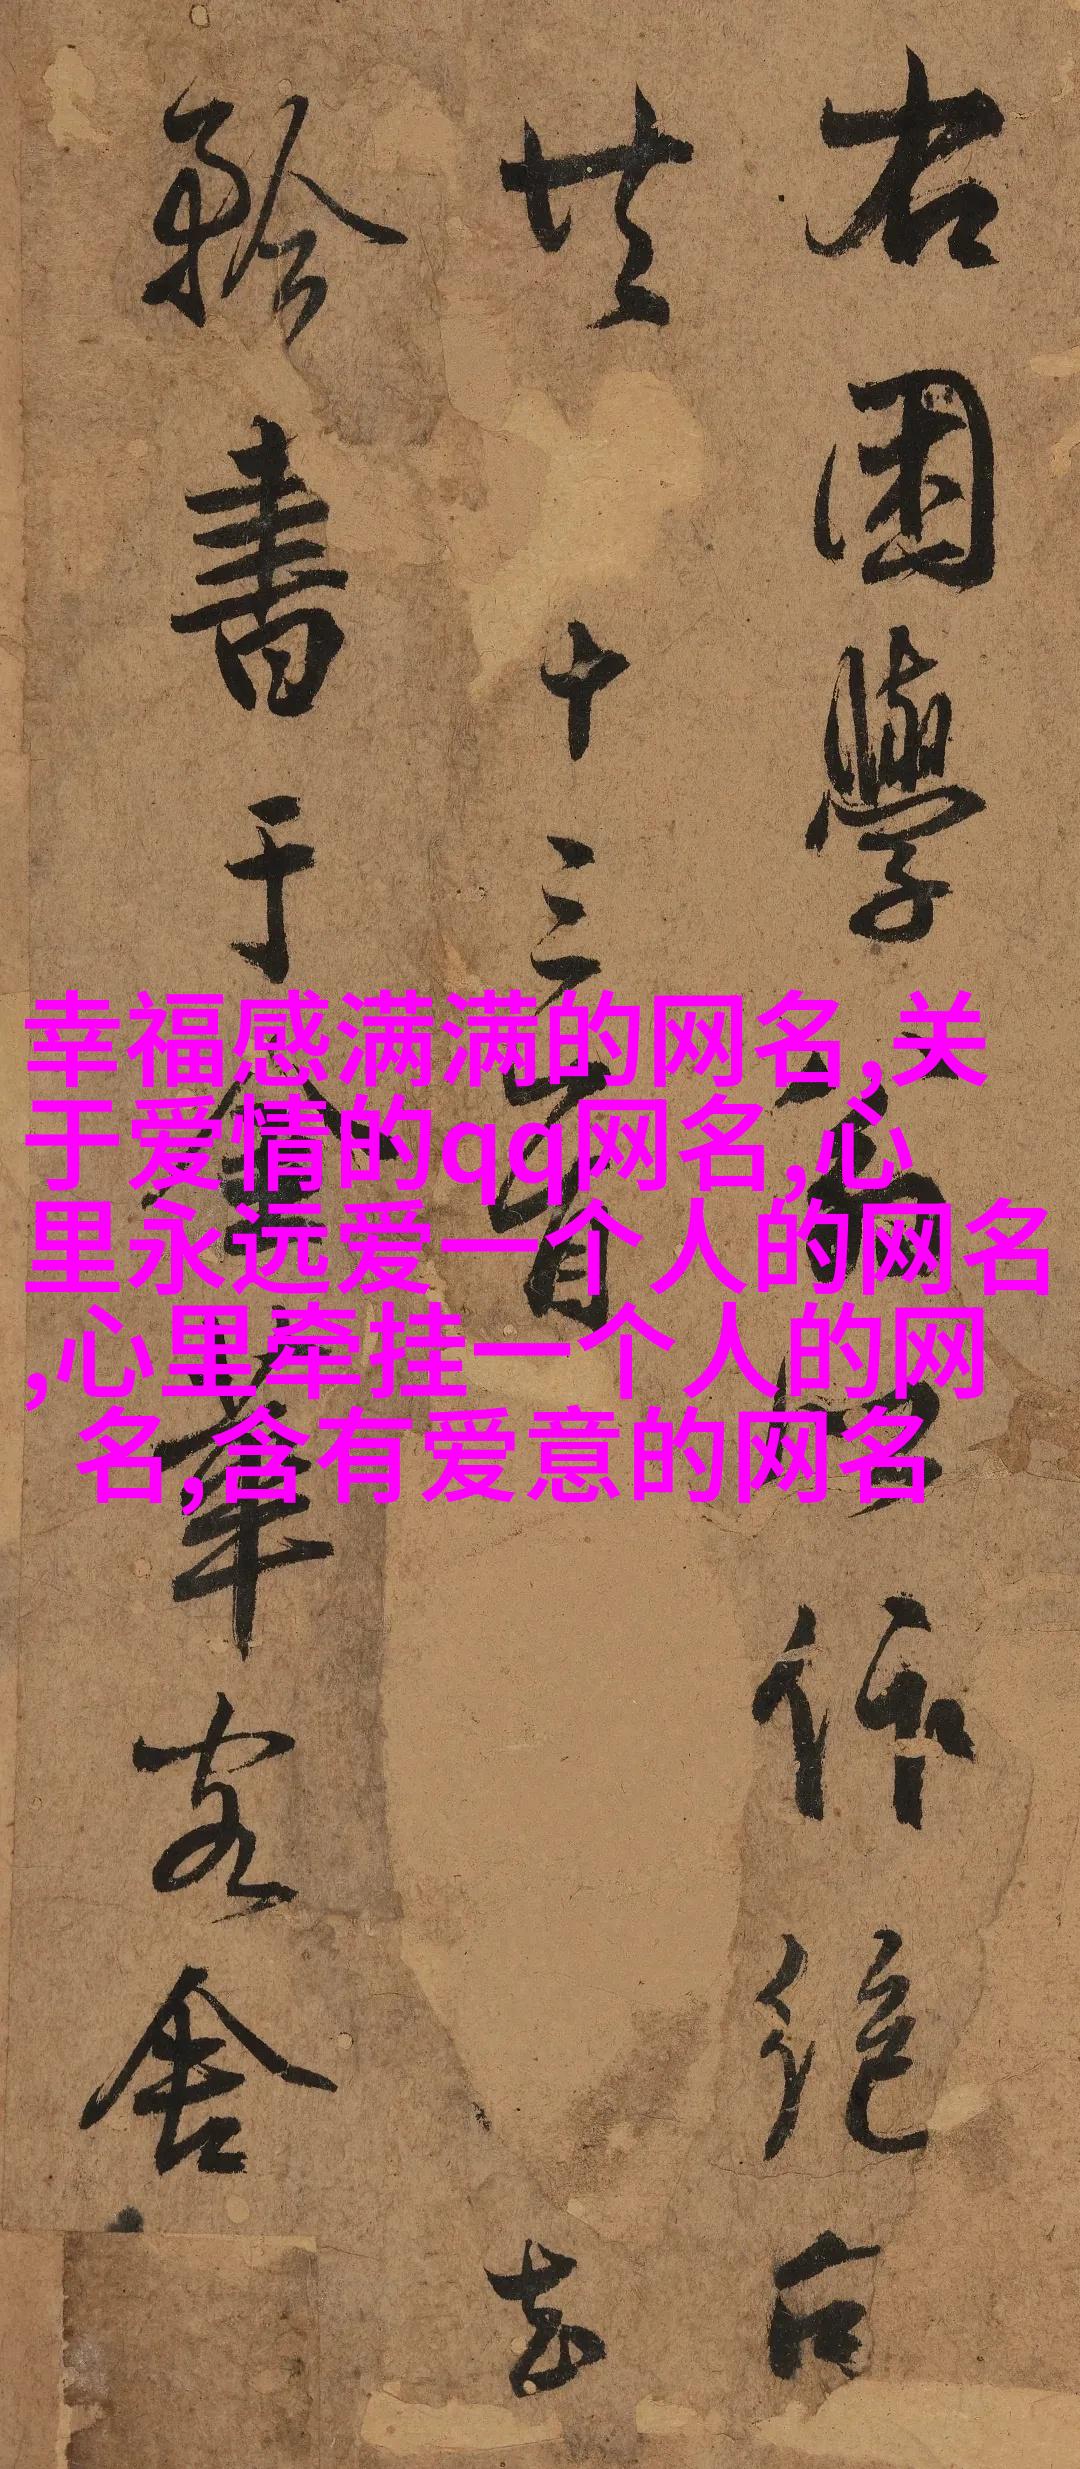 右困學
作絶句
共
十三
首
去
矜書于
客舍
幸福感满满的网名,关
于爱情的qq网名,心
里永远爱一个人的网名
,心里牵挂一个人的网
名,含有爱意的网名